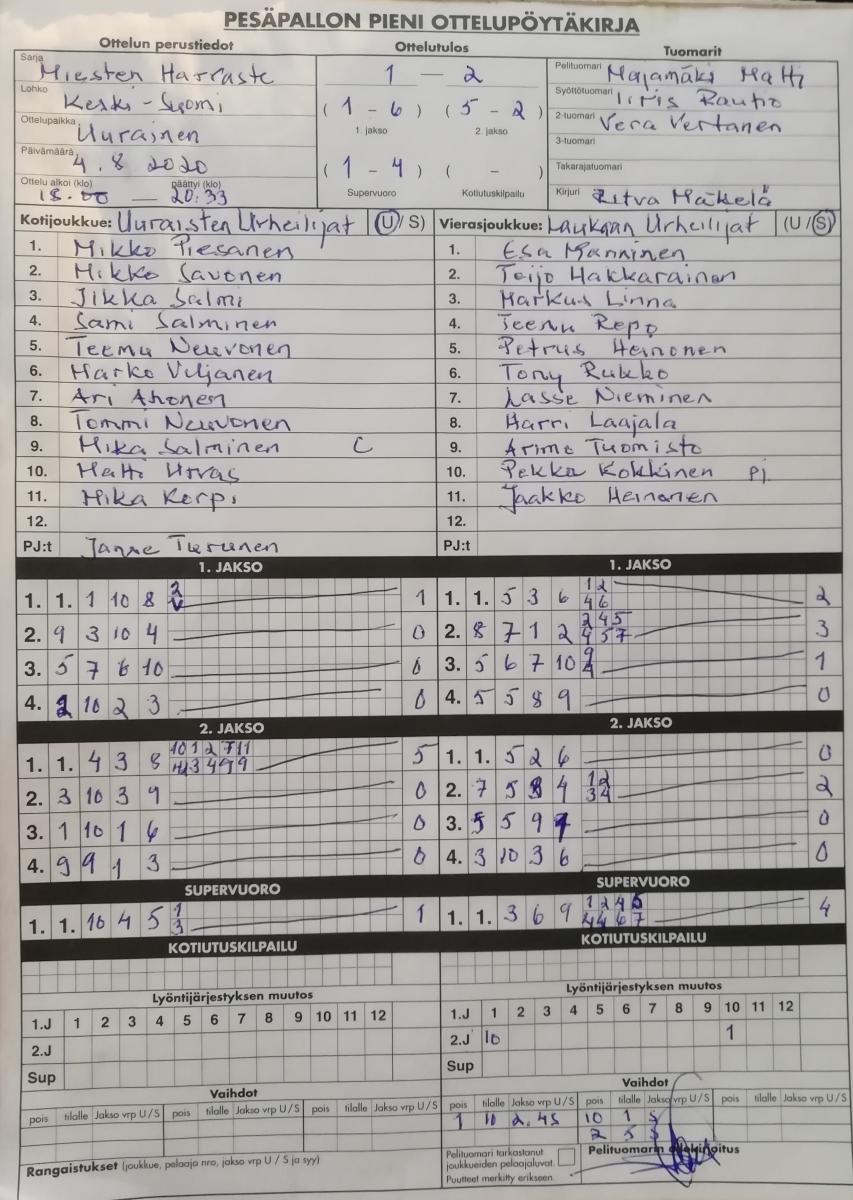 PESÄPALLON PIENI OTTELUPÖYTÄKIRJA
Ottelun perustiedot Ottelutulos Tuomarit
Sarja Miesten Harraste
1 — 2
Pelituomari Majamäki Matti
Lohko Keski-Suomi
(1 - 6) (5 - 2)
1. jakso 2. jakso
Syöttötuomari Iiris Rautio
Ottelupaikka Uurainen
2-tuomari Vera Vertanen
3-tuomari
Päivämäärä 4.8 2020
(1 - 4) ( - )
Supervuoro Kotiutuskilpailu
Takarajatuomari
Ottelu alkoi (klo) päättyi (klo)
18.00 — 20:33
Kirjuri Ritva Mäkelä
Kotijoukkue: Uuraisten Urheilijat (U/S) Vierasjoukkue: Laukaan Urheilijat (U/S)
1. Mikko Piesanen 1. Esa Manninen
2. Mikko Savonen 2. Teijo Hakkarainen
3. Jikka Salmi 3. Markus Linna
4. Sami Salminen 4. Teemu Repo
5. Teemu Neuvonen 5. Petrus Heinonen
6. Marko Viljanen 6. Tony Rukko
7. Ari Ahonen 7. Lasse Nieminen
8. Tommi Neuvonen 8. Harri Laajala
9. Mika Salminen C 9. Arimo Tuomisto
10. Matti Utvas 10. Pekka Kokkinen pj.
11. Mika Korpi 11. Jaakko Heinonen
12. 12.
PJ:t Janne Turunen PJ:t
1. JAKSO 1. JAKSO
1. 1. 1 10 8 2 1 1. 1. 5 3 6 1 2 2
4 6
2. 9 3 10 4 0 2. 8 7 1 2 2 4 5 3
4 5 7
3. 5 7 6 10 0 3. 5 6 7 10 9 1
4
4. 2 10 2 3 0 4. 5 5 8 9 0
2. JAKSO 2. JAKSO
1. 1. 4 3 8 10 1 2 7 11 5 1. 1. 5 2 6 0
11 3 4 9 9
2. 3 10 3 9 0 2. 7 5 8 4 1 2 2
3 4
3. 1 10 1 6 0 3. 5 5 9 7 0
4. 9 9 1 3 0 4. 3 10 3 6 0
SUPERVUORO SUPERVUORO
1. 1. 10 4 5 1 1 1. 1. 3 6 9 1 2 4 5 4
3 4 4 6 7
KOTIUTUSKILPAILU KOTIUTUSKILPAILU
Lyöntijärjestyksen muutos Lyöntijärjestyksen muutos
1.J 1 2 3 4 5 6 7 8 9 10 11 12 1.J 1 2 3 4 5 6 7 8 9 10 11 12
2.J 2.J 10 1
Sup Sup
Vaihdot Vaihdot
pois tilalle Jakso vrp U/S pois tilalle Jakso vrp U/S pois tilalle Jakso vrp U/S pois tilalle Jakso vrp U/S pois tilalle Jakso vrp U/S pois tilalle Jakso vrp U/S
1 10 2.4S 10 1 S
2 5 S
Rangaistukset (joukkue, pelaaja nro, jakso vrp U / S ja syy)
Pelituomari tarkastanut
joukkueiden pelaajaluvat.
Puutteet merkitty erikseen.
Pelituomarin allekirjoitus